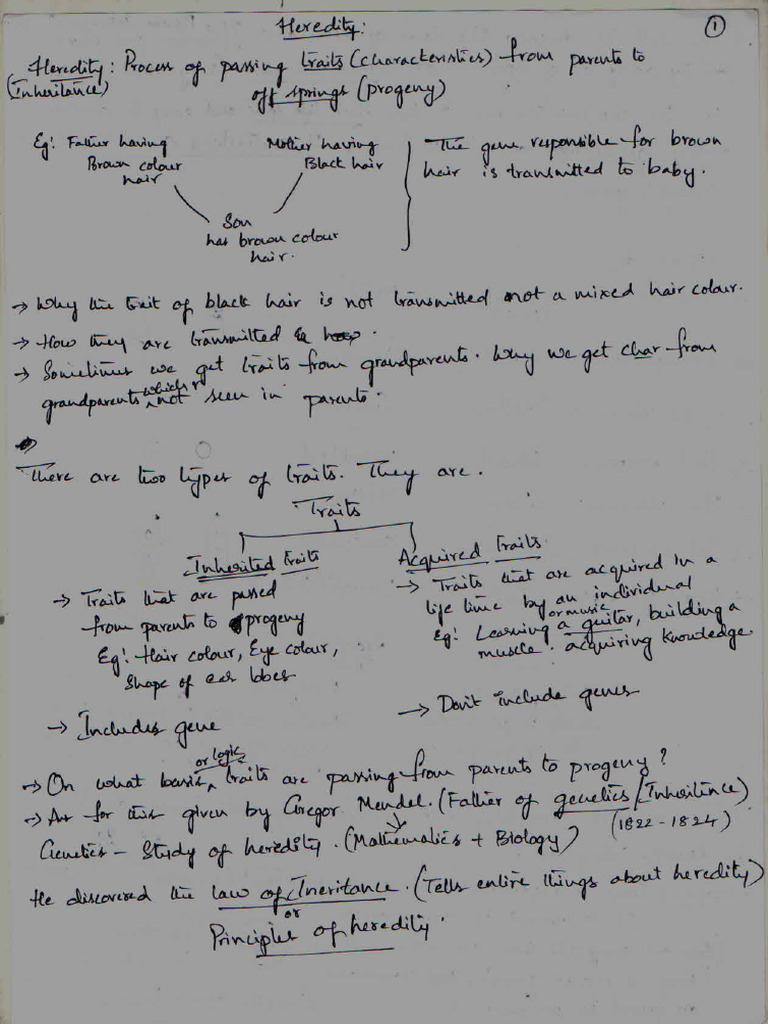 Heredity:
1
Heredity: Process of passing traits (characteristics) from parents to
(Inheritance) off springs (progeny)
Eg: Father having Mother having The gene responsible for brown
Brown colour Black hair hair is transmitted to baby.
hair
Son
has brown colour
hair.
→ Why the trait of black hair is not transmitted not a mixed hair colour.
→ How they are transmitted
→ Sometimes we get traits from grandparents. Why we get char from
grandparents which not seen in parents.
There are two types of traits. They are.
Traits
Inherited traits
→ Traits that are passed
from parents to progeny
Eg: Hair colour, Eye colour,
Shape of ear lobes
→ Includes gene
Acquired Traits
→ Traits that are acquired in a
life time by an individual
Eg: Learning a guitar, or music building a
muscle. acquiring knowledge.
→ Don't include genes
→ On what basis or logic traits are passing from parents to progeny?
→ Ans for this given by Gregor Mendel. (Father of genetics/Inheritince)
(1822-1824)
Genetics - Study of heredity. (Mathematics + Biology)
He discovered the law of Ineritance. (Tells entire things about heredity)
or
Principles of heredity.